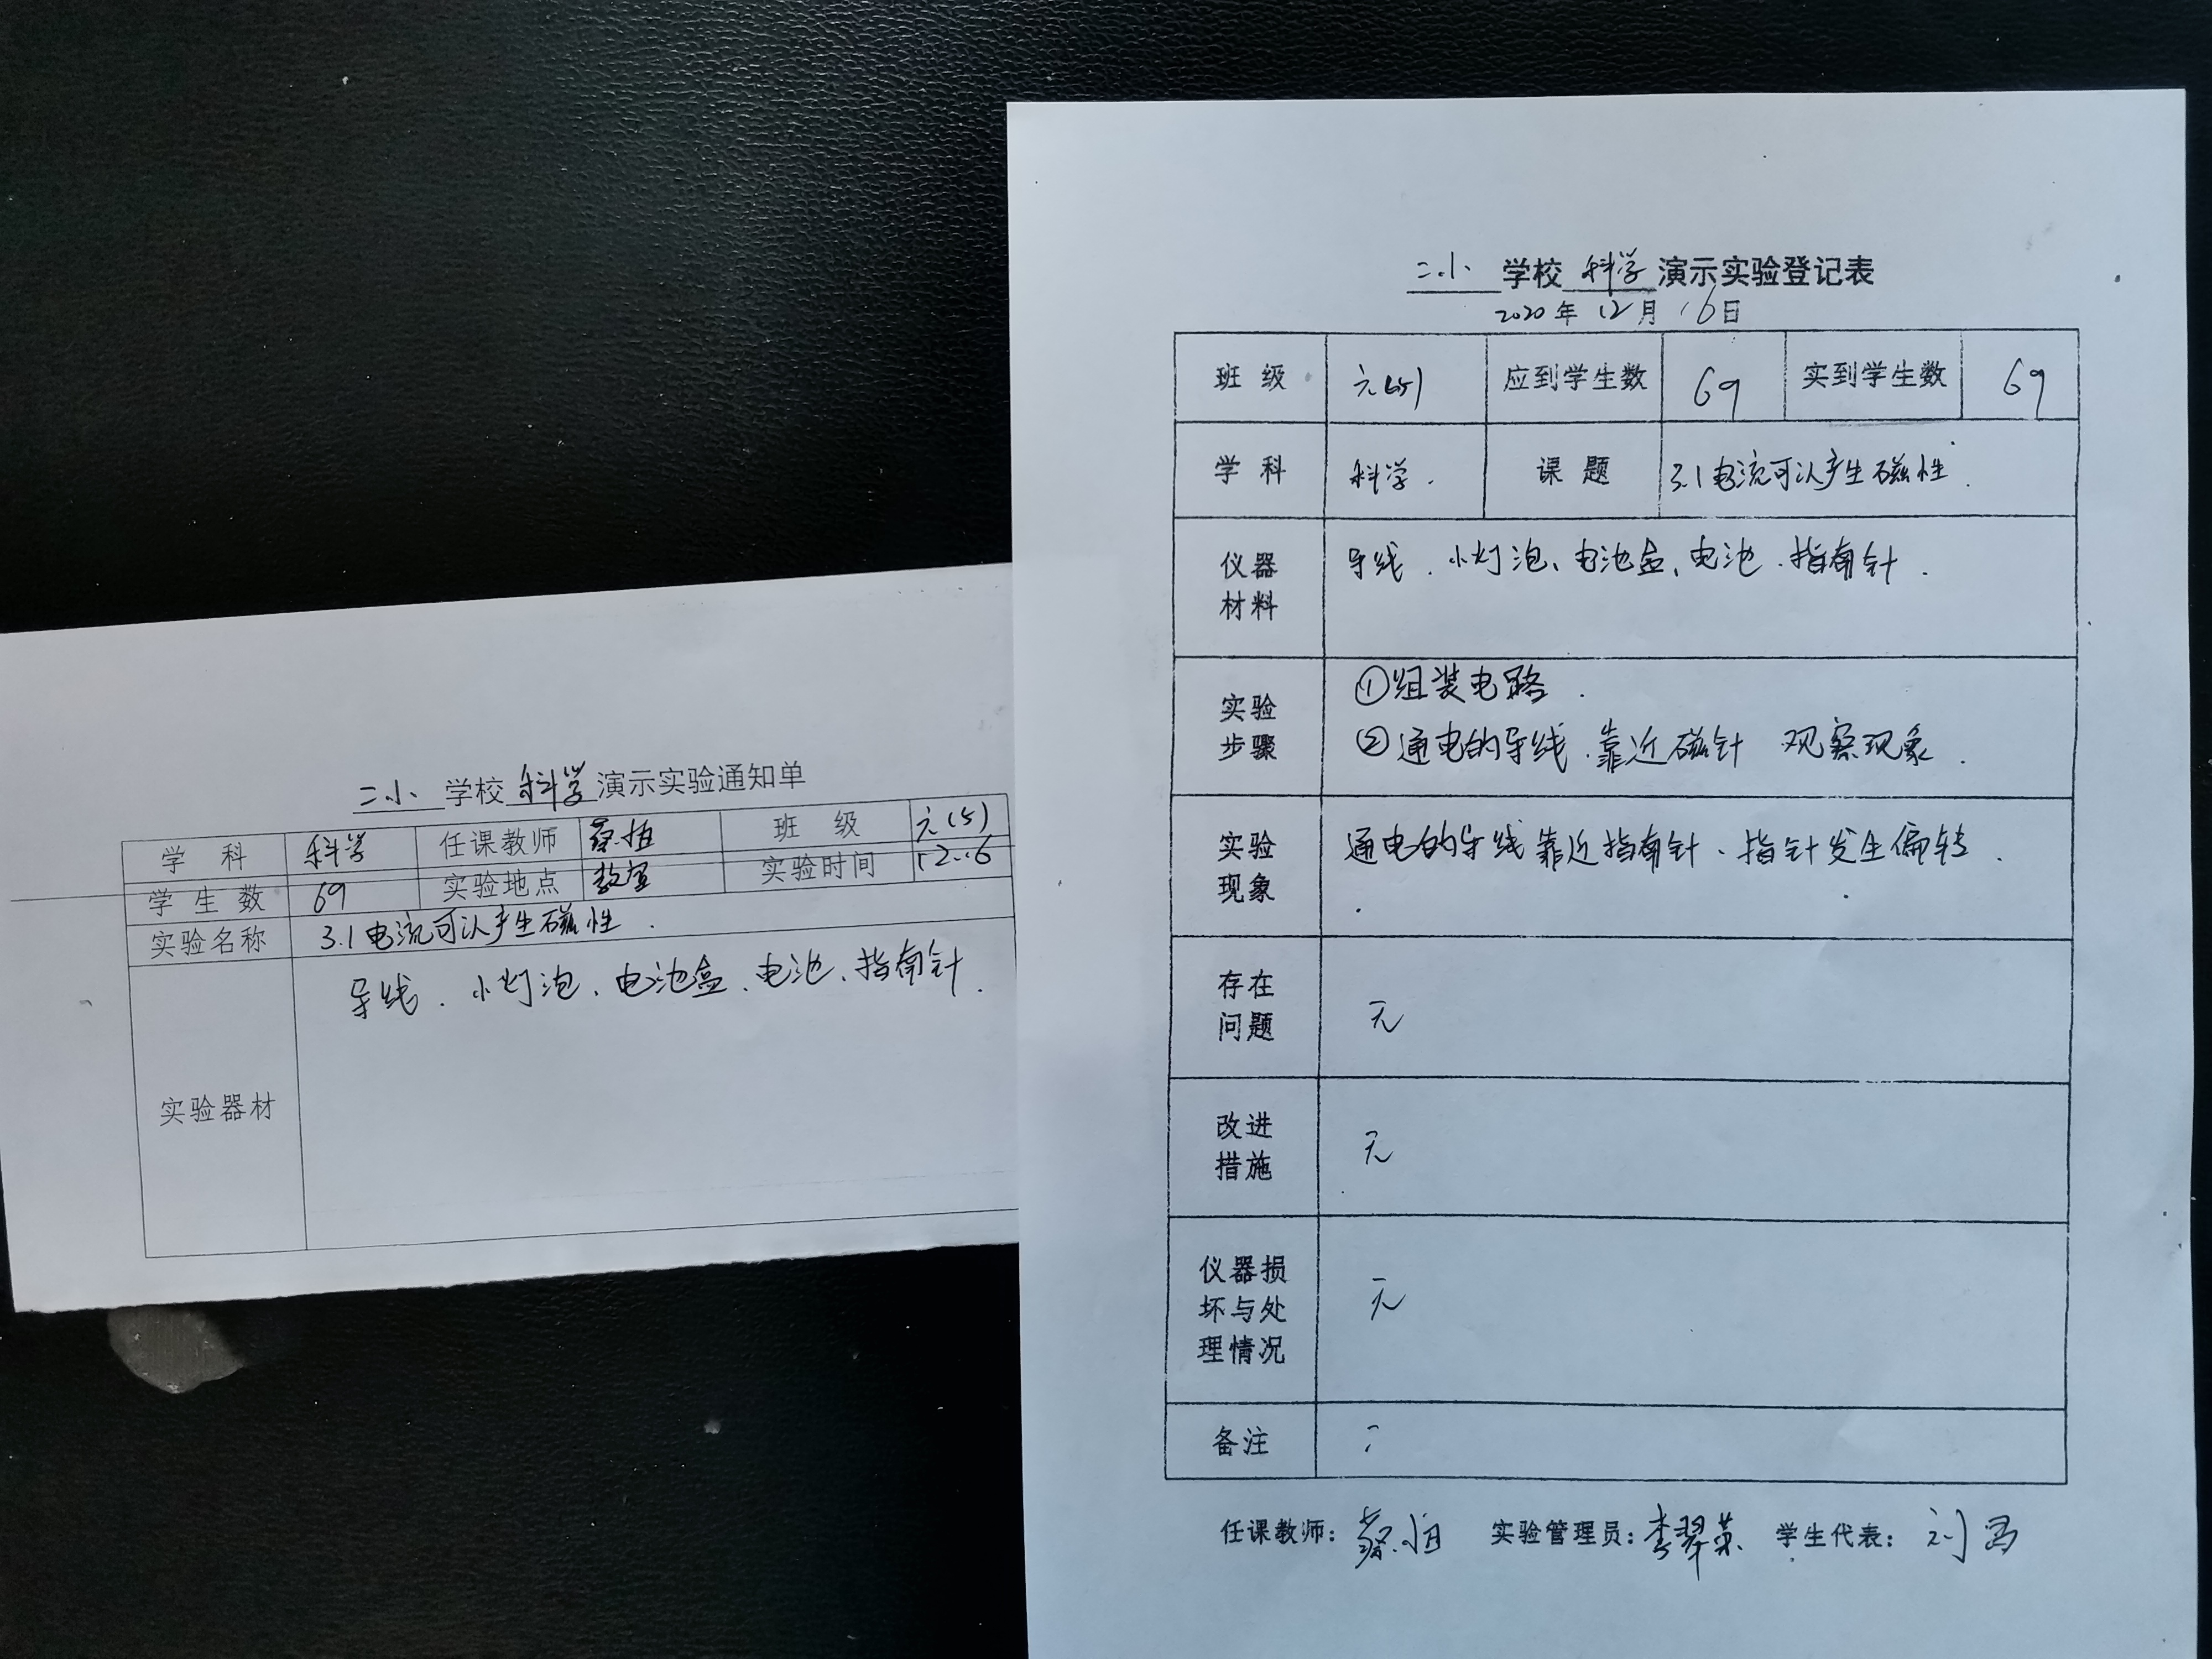 二小 学校 科学 演示实验通知单
学科 科学 任课教师 班级 六(5)
学生数 69 实验地点 教室 实验时间 12.16
实验名称 3.1电流可以产生磁性.
实验器材 导线、小灯泡、电池盒、电池、指南针.
二小 学校 科学 演示实验登记表
2020年 12月 16日
班级 六(5) 应到学生数 69 实到学生数 69
学科 科学. 课题 3.1电流可以产生磁性.
仪器
材料
导线、小灯泡、电池盒、电池、指南针.
实验
步骤
①组装电路.
②通电的导线.靠近磁针 观察现象.
实验
现象
通电的导线靠近指南针、指针发生偏转.
存在
问题
无
改进
措施
无
仪器损
坏与处
理情况
无
备注
任课教师: 实验管理员:李翠荣 学生代表: